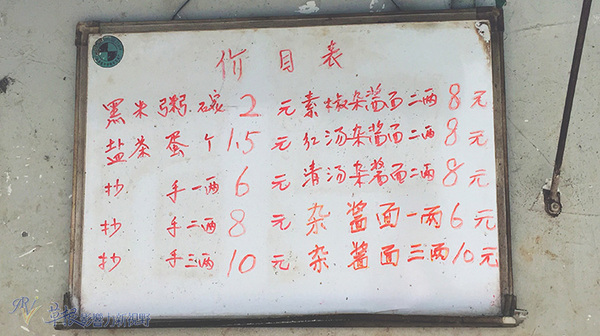 价目表
黑米粥 碗 2 元 素椒杂酱面二两 8 元
盐茶蛋 个 1.5 元 红汤杂酱面二两 8 元
抄手一两 6 元 清汤杂酱面二两 8 元
抄手二两 8 元 杂酱面一两 6 元
抄手三两 10 元 杂酱面三两 10 元
草根影響力新視野